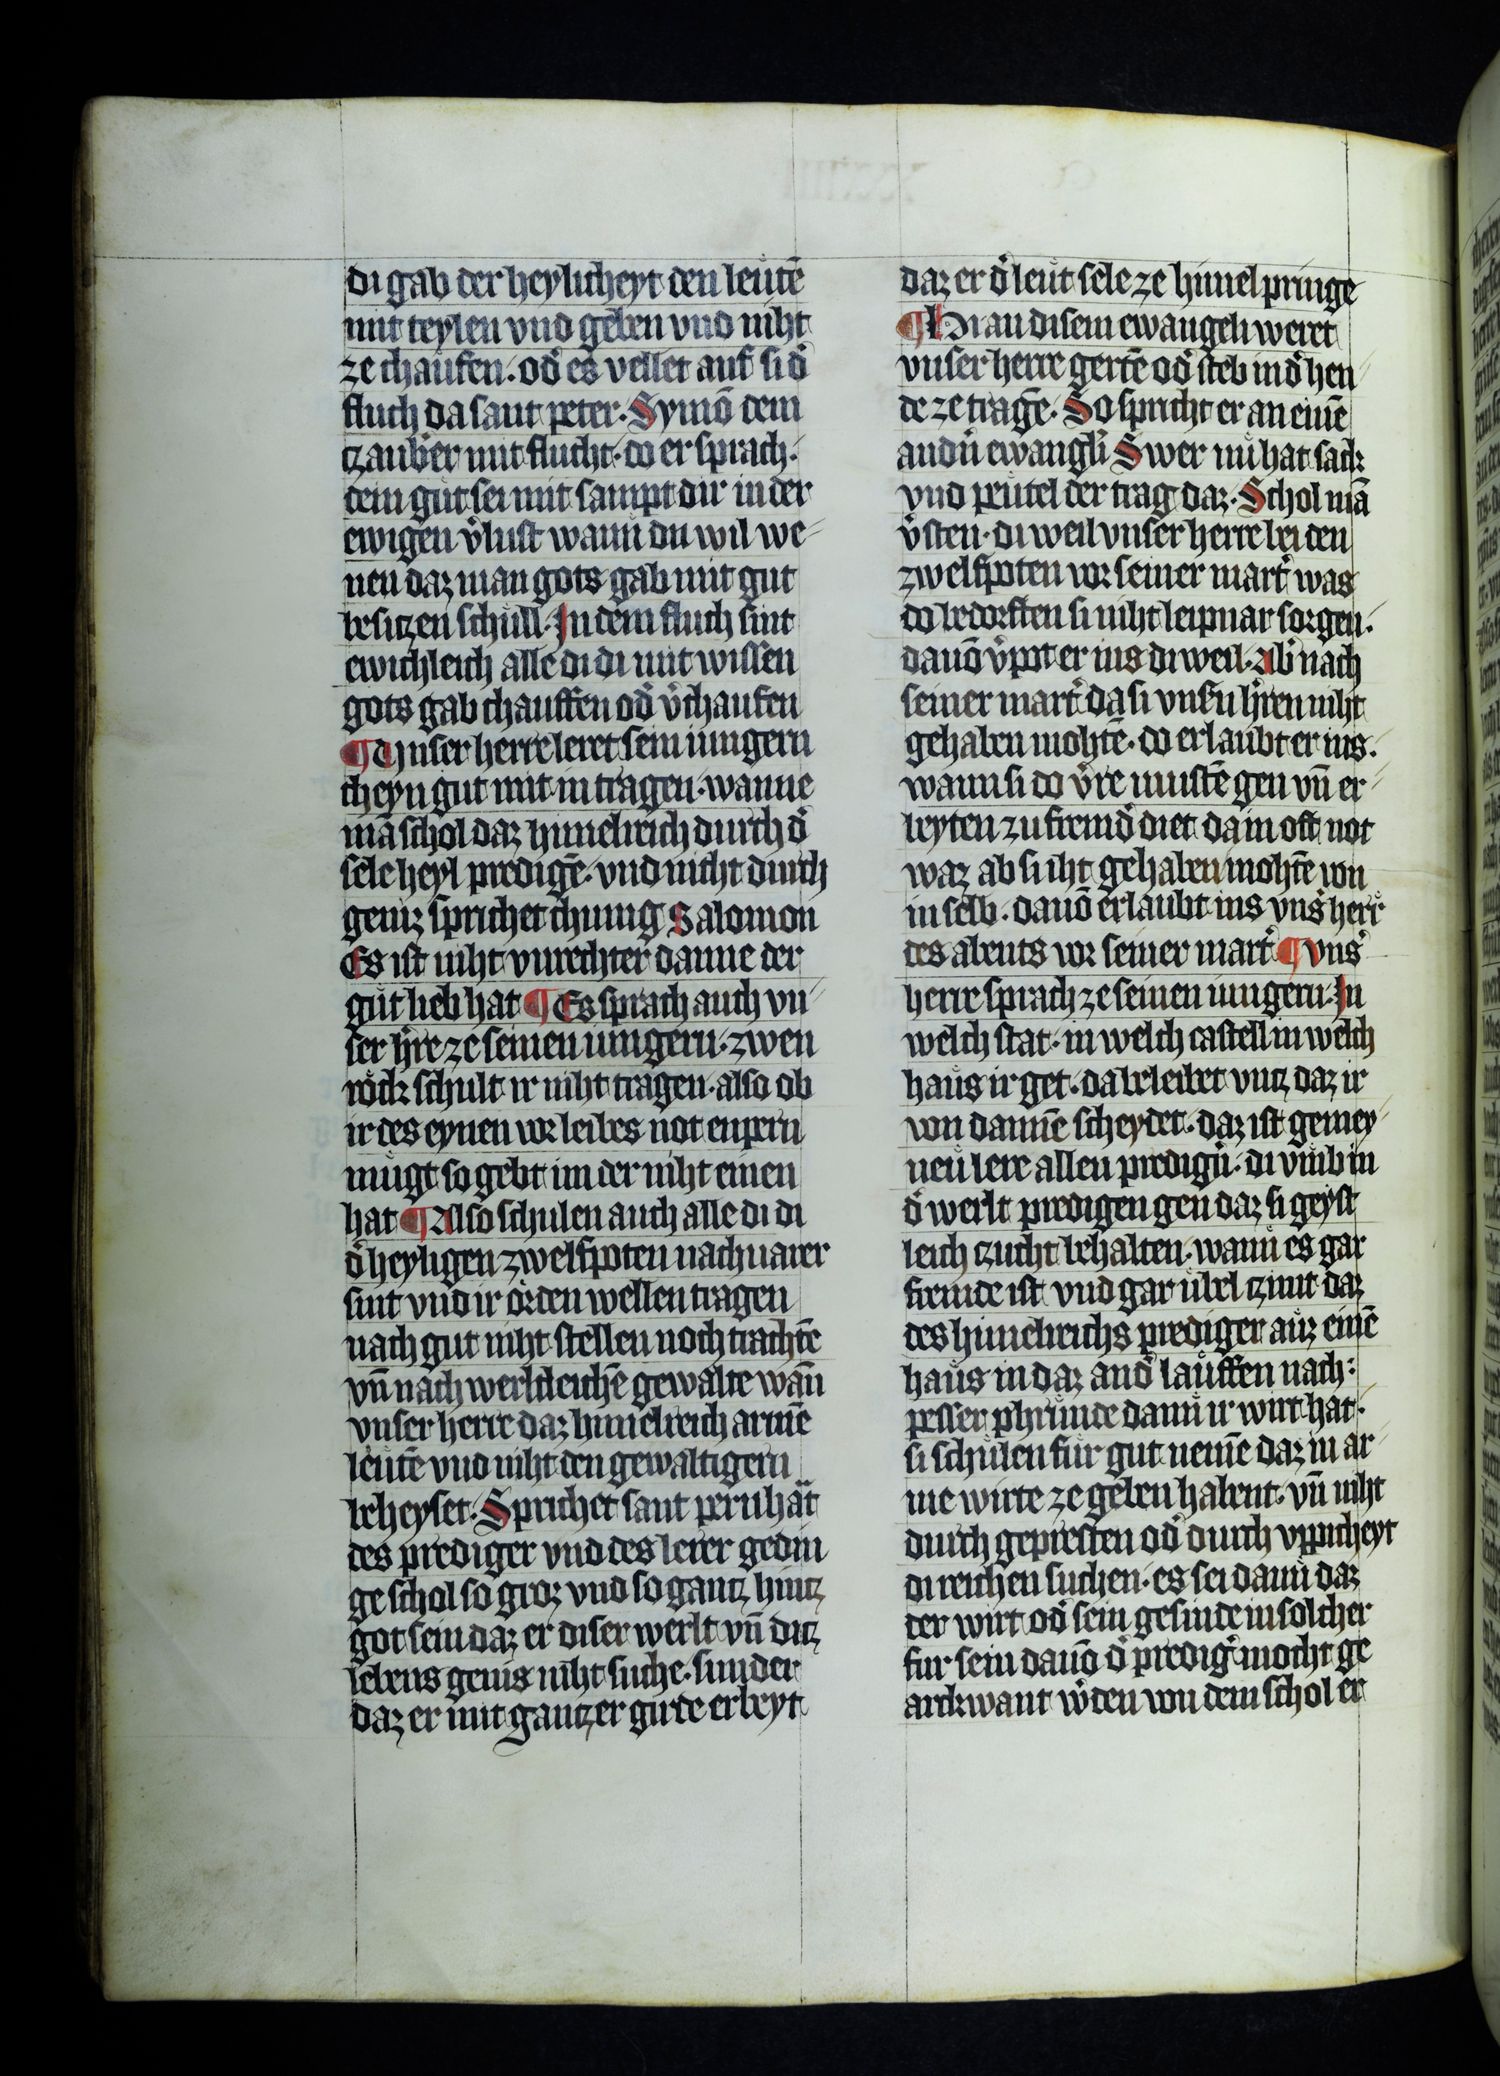 di gab der heylicheyt den leůtē
mit teylen vnd geben vnd niht
ze chaufen · od̾ es vellet auf si d̾
fluch da sant peter · Symō dem
czaub̾er mit flucht · do er sprach ·
dein gůt sei mit sampt dir in der
ewigen v̾lust wann̄ du wil we-
nen daz man gots gab mit gut
besitzen schůll · In dem fluch sint
ewichleich alle di di mit wissen
gots gab chauffen od̾ v̾chaufen
¶ Unser herre leret sein iungern
cheyn gut mit in tragen · wanne
mā schol daz himelreich durch d̾
sele heyl predigē · vnd nicht durch
geniz sprichet chunig Salomon
Es ist niht vnrechter danne der
gůt lieb hat ¶ Es sprach auch vn-
ser h̾re ze seinen iungern · zwen
röck schult ir niht tragen · also ob
ir des eynen vor leibes not enpern
můgt so gebt im der niht einen
hat ¶ Also schulen auch alle di di
d̾ heyligen zwelfpoten nachuarer
sint vnd ir orden wellen tragen
nach gut niht stellen noch trachtē
vn̄ nach werltleichē gewalte wan̄
vnser herre daz himelreich armē
leůtē vnd niht den gewaltigern
beheyset · Sprichet sant pernhät
des prediger vnd des lerer gedin
ge schol so groz vnd so gantz hintz
got sein daz er diser werlt vn̄ ditz
lebens genis niht suche · sunder
daz er mit gantzer girde erbeyt
daz er d̾ leůt sele ze himel pringe
¶ Hi an disem ewangeli weret
vnser herre gertē od̾ steb in d̾ hen
de ze tragē · So spricht er an einē
andn̾ ewangli̾ Swer nů hat sack
vnd peůtel der trag daz · Schol mā
v̾sten · di weil vnser herre bei den
zwelfpoten vor seiner mart̾ was
do bedorften si niht leipnar sorgen ·
dauō v̾pot er ins di weil · Ab̾ nach
seiner mart̾ da si vnsn̾ h̾ren niht
gehaben mohtē · do erlaubt er ins ·
wann si do v̾re mustē gen vn̄ er-
beyten zu fremd̾ diet da in oft not
waz ab si iht gehaben mohtē von
in selb · dauō erlaubt ins vns̾ herr
des abents vor seiner mart̾ ¶ vns̾
herre sprach ze seinen iungern · In
welch stat · in welch castell in welch
haůs ir get · da beleibet vntz daz ir
von dannē scheydet · daz ist gemey-
neů lere allen predign̾ · di vmb in
d̾ werlt predigen gen daz si geyst
leich zucht behalten · wann̄ es gar
fremde ist vnd gar ůbel czimt daz
des himelreichs prediger aůz einē
haůs in daz and̾ lauffen nach :
pesser phrůnde dann̄ ir wirt hat ·
si schůlen fůr gut nemē daz in ar-
me wirte ze geben habent · vn̄ niht
durch gepresten od̾ durch vppicheyt
di reichen suchen · es sei dann̄ daz
der wirt od̾ sein gesinde in solcher
fur sein dauō d̾ predig̾ mocht ge
arckwant w̾den von dem schol er